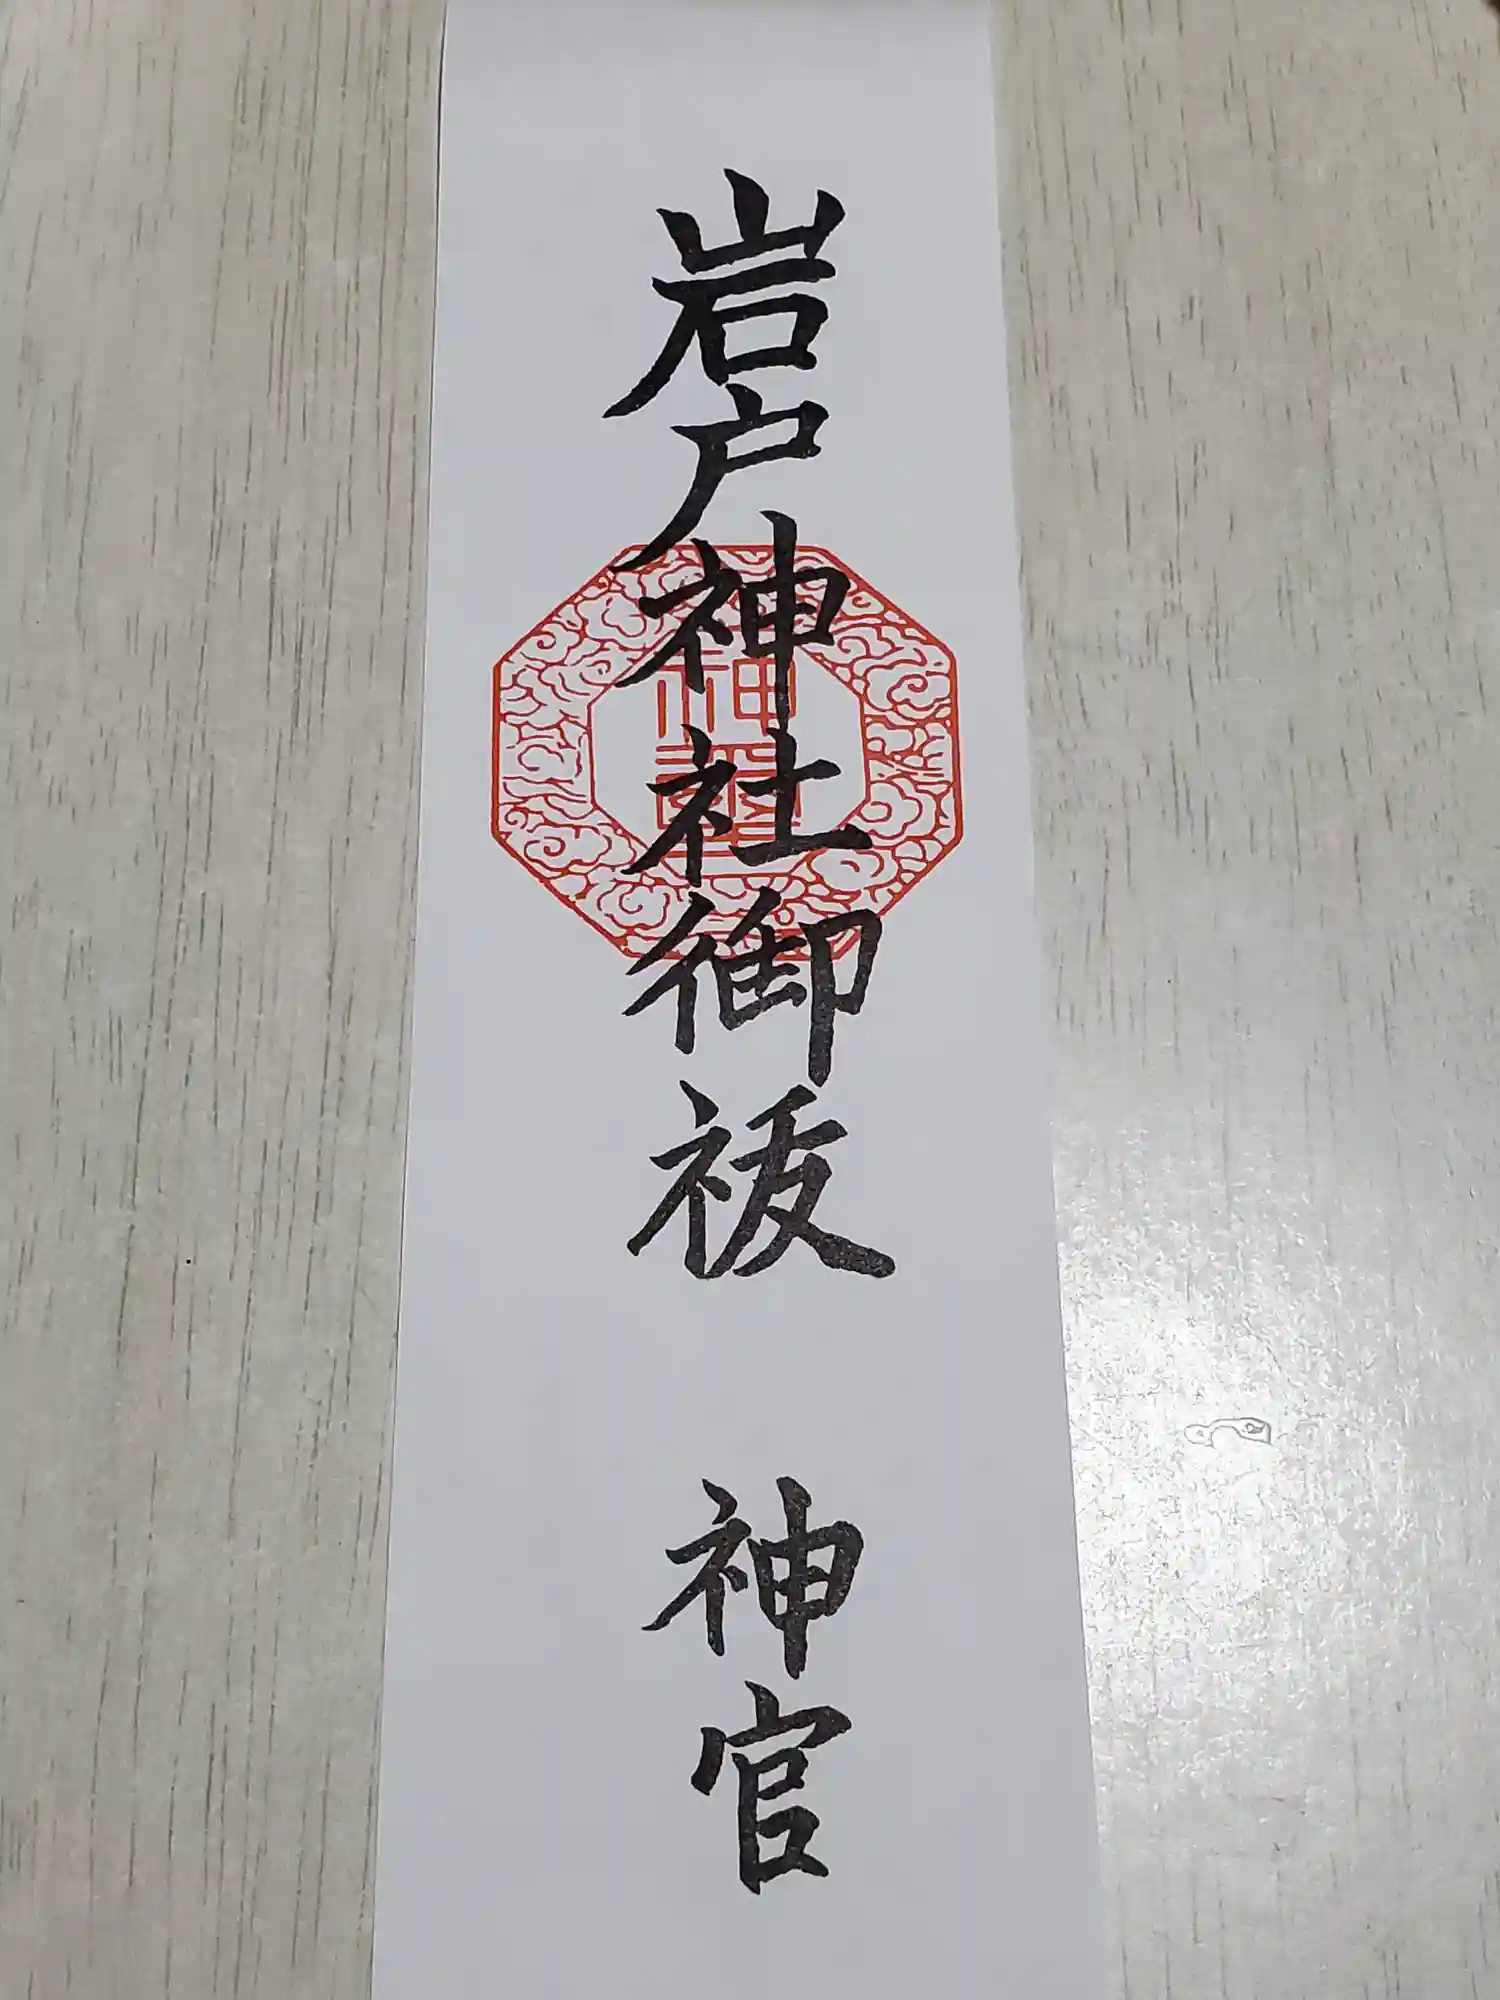 岩戸神社御祓 神官
神璽